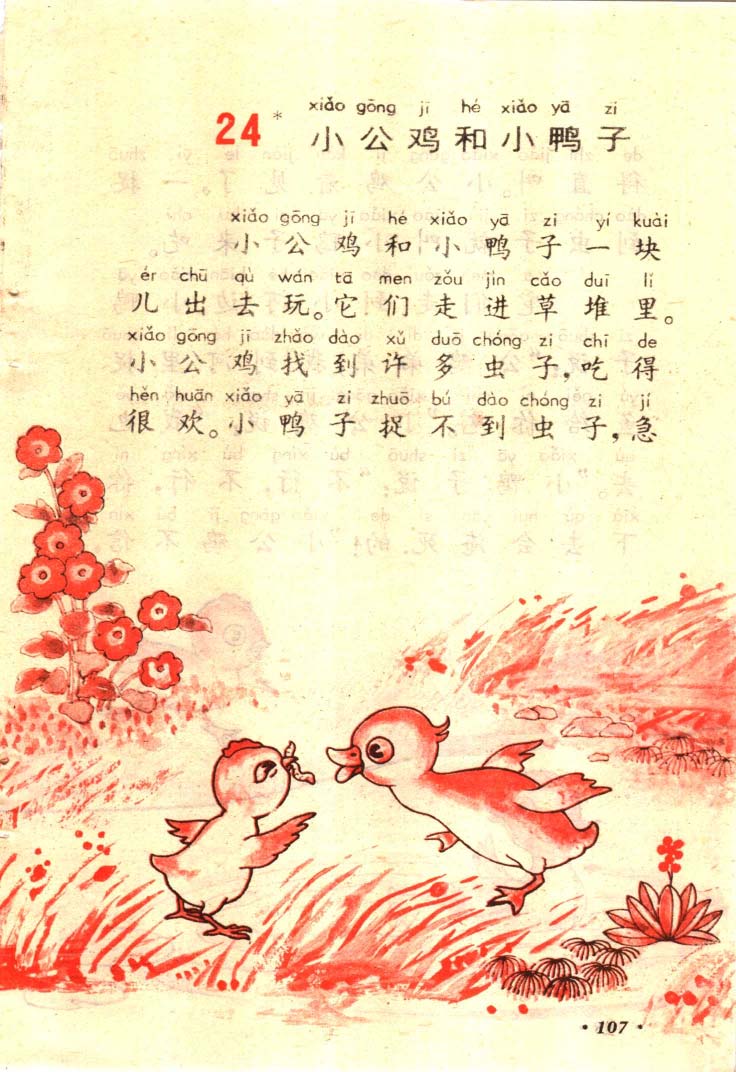 xiǎo gōng jī hé xiǎo yā zi
24* 小公鸡和小鸭子
xiǎo gōng jī hé xiǎo yā zi yí kuài
小公鸡和小鸭子一块
ér chū qù wán tā men zǒu jìn cǎo duī lǐ
儿出去玩。它们走进草堆里。
xiǎo gōng jī zhǎo dào xǔ duō chóng zi chī de
小公鸡找到许多虫子,吃得
hěn huān xiǎo yā zi zhuō bú dào chóng zi jí
很欢。小鸭子捉不到虫子,急
·107·